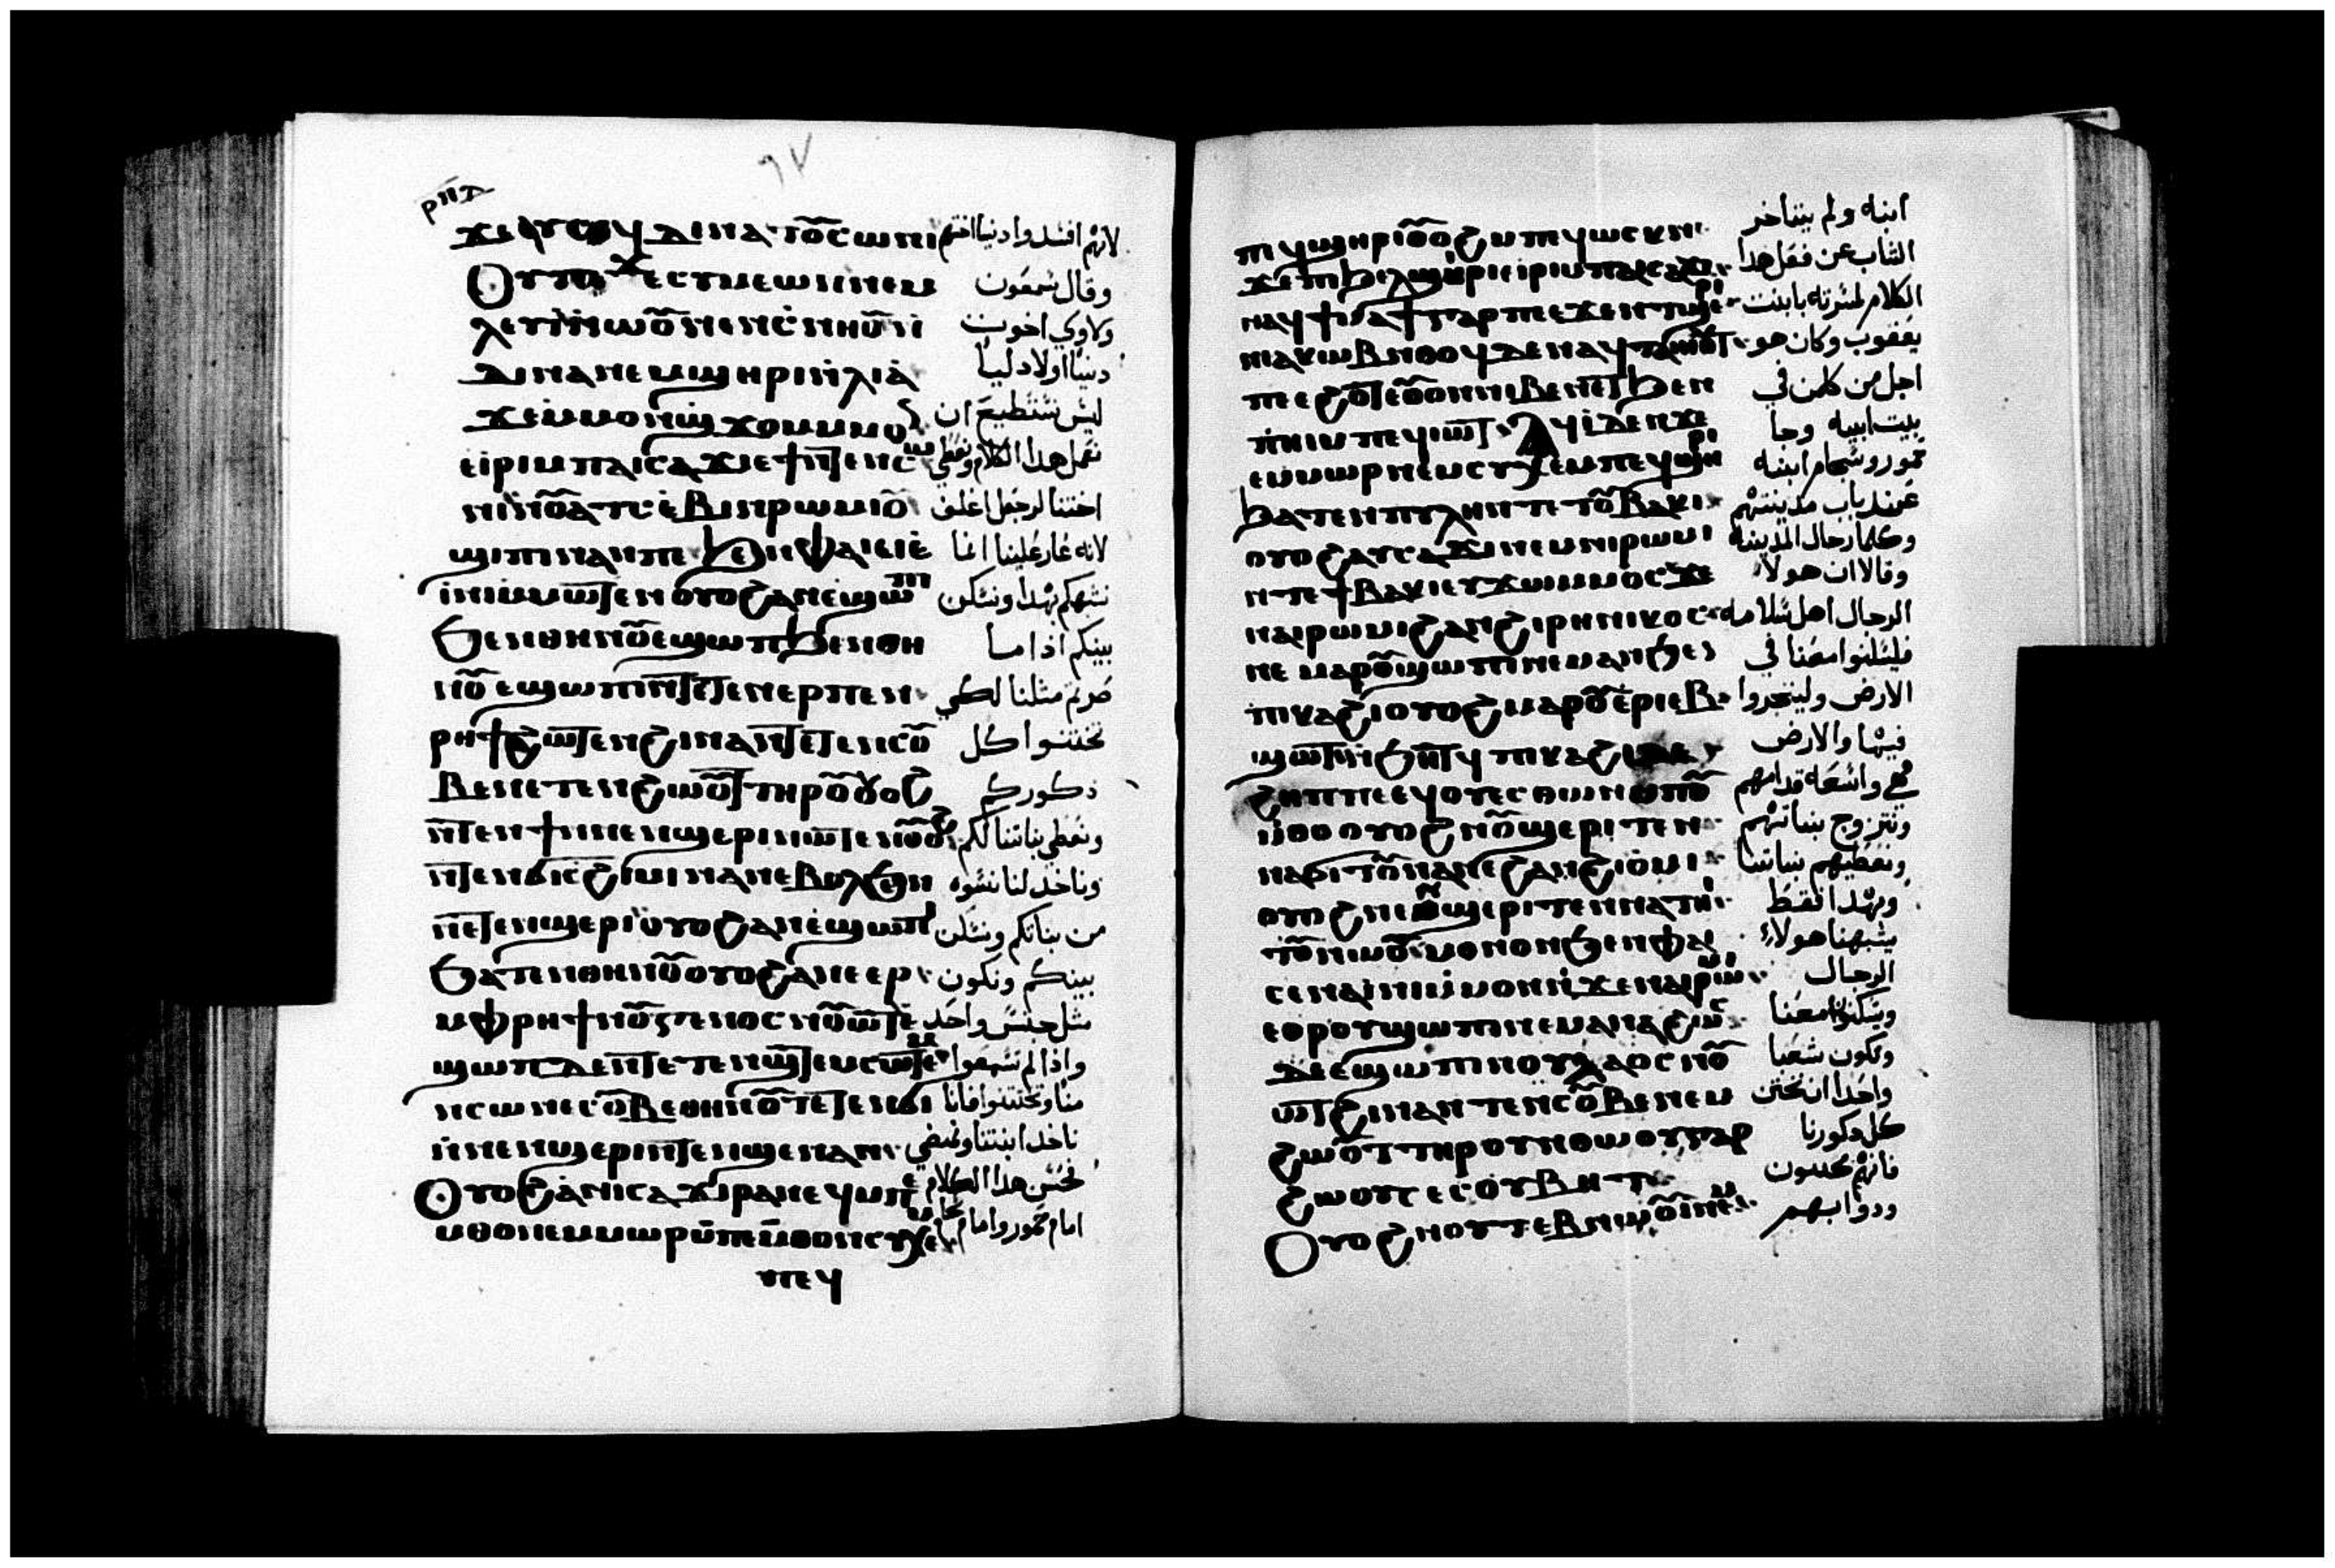 ٩٧
ϫⲉⲁⲩⲥⲱϥ ⲇⲓⲛⲁ ⲧⲟ̅ⲥⲱⲛⲓ لانهم افسدوا دنيا اختهم
ⲥⲩⲙⲉⲱⲛ ⲛⲉⲙ وقال شمعون
ⲗⲉⲩⲓ ⲛⲱⲟ̅ ⲛⲉⲛⲥⲛⲏⲟⲩ ⲛ̀ ولاوي اخوت
ⲇⲓⲛⲁ ⲛⲉⲙϣⲏⲣⲓ ⲛ̀ⲗⲓⲁ̀ دنيا اولاد ليا
ϫⲉⲙ̀ⲙⲟⲛϣϫⲟⲙ ⲙⲙⲟ ليس نستطيع ان
ⲉⲓⲣⲓ ⲙⲡⲁⲓⲥⲁϫⲓ ⲉϯ ⲛ̀ⲧⲉⲛⲥ نعمل هذا الكلام ونعطي
ⲛⲟ̅ⲁⲧⲥⲉⲃⲓ ⲛⲣⲱⲙⲓ اختنا لرجل اغلف
ϣⲓⲡⲓ ⲛⲁⲛⲡⲉ ϧⲉⲛⲫⲁⲓ لانه عار علينا انما
ⲓⲛⲓ ⲙⲙⲱⲧⲉⲛ ⲟⲩⲟϩ ⲁⲛⲉϣⲱⲡⲓ نشبهكم بهدا ونسكن
ϧⲉⲛⲑⲏⲛⲟ̅ ⲉϣⲱⲡ ϧⲉⲛⲑⲏ بينكم اذا ما
ⲛⲟ̅ ⲉϣⲱⲡⲓ ⲛ̀ⲧⲉⲧⲉⲛⲉⲣⲡⲉⲛ صرتم مثلنا لكي
ⲣⲏϯ ϩⲱⲧⲉⲛ ϩⲓⲛⲁ ⲛ̀ⲧⲉⲧⲉⲛⲥⲟ̅ تختتنوا كل
ⲃⲉ ⲛⲉⲧⲉⲛϩⲱⲟ̅ⲧ ⲧⲏⲣⲟ̅ ⲟⲩⲟϩ ذكوركم
ⲛ̀ⲧⲉⲛϯ ⲛⲛⲉⲛϣⲉⲣⲓ ⲛⲱⲧⲉⲛ ⲟⲩⲟϩ ونعطي بناتنا لكم
ⲛ̀ⲧⲉⲛϭⲓ ϩⲓⲙⲓ ⲛⲁⲛ ⲉⲃⲟⲗϧⲉⲛ وناخذ لنا نسوه
ⲛⲉⲧⲉⲛϣⲉⲣⲓ ⲟⲩⲟϩ ⲁⲛⲉϣⲱⲡⲓ من بناتكم ونسكن
ϧⲁⲧⲉⲛⲑⲏⲛⲟ̅ ⲟⲩⲟϩ ⲁⲛⲉⲉⲣ بينكم ونكون
ⲙⲫⲣⲏϯ ⲛⲟ̅ⲅⲉⲛⲟⲥ ⲛⲟ̅ⲱⲧ ⲉ̀ مثل جنس واحد
ϣⲱⲡ ⲇⲉ ⲛ̀ⲧⲉⲧⲉⲛϣⲧⲉⲙⲥⲱⲧⲉⲙ واذا لم تسمعوا
ⲛⲥⲱⲛ ⲉⲥⲟ̅ⲃⲉ ⲑⲏⲛⲟ̅ ⲧⲉⲧⲉⲛϭⲓ منا وتختتنوا فاننا
ⲛ̀ⲛⲉⲛϣⲉⲣⲓ ⲛ̀ⲧⲉⲛϣⲉⲛⲁⲛ ناخذ ابنتنا ونمضي
ⲟⲩⲟϩ ⲁⲛⲓⲥⲁϫⲓ ⲣⲁⲛⲉϥ ⲙⲡⲉ فحسن هدا الكلام
ⲙⲑⲟ ⲛⲉⲙⲙⲱⲣ ⲛⲉⲙ ⲙⲡⲉⲙⲑⲟ ⲛⲥⲩⲭⲉⲙ امام حمور وامام
ⲡⲉϥ
ⲡϥϣⲏⲣⲓ ⲟⲩⲟϩ ⲙⲡϥⲱⲥⲕ ⲛ ابنه ولم يتاخر
ϫⲉ ⲡϧⲉⲗϣⲏⲣⲓ ⲉⲓⲣⲓ ⲙⲡⲁⲓⲥⲁϫⲓ الشاب عن فعل هدا
ⲛⲁϥϯ ⲅⲁⲣ ⲡⲉ ϧⲉⲛⲧϣⲉⲣⲓ الكلام لمسرته بابنت
ⲛⲓⲁⲕⲱⲃ ⲛⲑⲟϥ ⲇⲉ ⲛⲁϥ يعقوب وكان هو
ⲡⲉ ⲉϩⲟ̅ⲧⲉ ⲟ̅ⲟⲛ ⲛⲓⲃⲉⲛ ⲉⲧϧⲉⲛ اجل من كلمن في
ⲡⲏⲓ ⲙⲡⲉϥⲓⲱⲧ ⲁϥⲓ ⲇⲉ ⲛϫⲉ بيت ابيه وجا
ⲉⲙⲙⲱⲣ ⲛⲉⲙⲥⲩⲭⲉⲙ ⲡⲉϥϣⲏⲣⲓ حمور وشحام ابنه
ϧⲁⲧⲉⲛ ⲡⲩⲗⲏ ⲛⲧⲉ ⲧⲟ̅ⲃⲁⲕⲓ عند باب مدينتهم
ⲟⲩⲟϩ ⲁⲩⲥⲁϫⲓ ⲛⲉⲙⲛⲓⲣⲱⲙⲓ وكلما رجال المدينه
ⲛⲧⲉϯⲃⲁⲕⲓ ⲉⲩϫⲱⲙⲙⲟⲥ ϫⲉ وقالا ان هولا
ⲛⲁⲓⲣⲱⲙⲓ ϩⲁⲛϩⲓⲣⲏⲛⲓⲕⲟⲥ الرجال اهل سلامه
ⲛⲉ ⲙⲁⲣⲟ̅ϣⲱⲡⲓ ⲛⲉⲙⲁⲛ ϩⲓ فليسكنوا معنا في
ⲡⲓⲕⲁϩⲓ ⲟⲩⲟϩ ⲙⲁⲣⲟ̅ⲉⲣⲓⲉⲃ الارض وليتجروا
ϣⲱⲧ ⲛ̀ϧⲏⲧϥ ⲡⲓⲕⲁϩⲓ ⲇⲉ فيها والارض
ϩⲏⲡⲡⲉ ⲉϥⲟⲩⲉⲥⲑⲱⲛ ⲙⲡⲟ̅ واسعه قدامهم
ⲙ̀ⲑⲟ ⲟⲩⲟϩ ⲛⲟ̅ϣⲉⲣⲓ ⲧⲉⲛ ونتزوج بنباتهم
ⲛⲁϭⲓⲧⲟ̅ ⲛⲁⲛ ⲉϩⲁⲛϩⲓⲟⲙⲓ ونعطيهم بناتنا
ⲟⲩⲟϩ ⲛⲉⲛϣⲉⲣⲓ ⲧⲉⲛⲛⲁⲧⲏⲓ وبهدا فقط
ⲧⲟ̅ ⲛⲱⲟ̅ ⲙⲟⲛⲟⲛ ϧⲉⲛⲫⲁⲓ يشبهنا هولاء
ⲥⲉⲛⲁⲓⲛⲓ ⲙⲙⲟⲛ ⲛ̀ϫⲉⲛⲁⲓⲣⲱⲙⲓ الرجال
ⲉⲑⲣⲟⲩϣⲱⲡⲓ ⲛⲉⲙⲁⲛ ϩⲱⲥ ويسكنوا معنا
ⲇⲉ ⲉϣⲱⲡⲓ ⲛⲟⲩⲗⲁⲟⲥ ⲛⲟ̅ ونكون شعبا
ⲱⲧ ϩⲓⲛⲁ ⲛⲧⲉⲛⲥⲟ̅ⲃⲉ ⲛⲉⲛ واحدا ان نختن
ϩⲱⲟ̅ⲧ ⲧⲏⲣⲟⲩ ⲛⲑⲱⲟⲩ ⲅⲁⲣ كل دكورنا
ϩⲱⲟⲩ ⲥⲉⲥⲟⲩⲃⲏⲧ فانهم مختتنون
ⲟⲩⲟϩ ⲛⲟⲩⲧⲉⲃⲛⲱⲟ̅ⲓ ⲛⲉⲙ ودوابهم